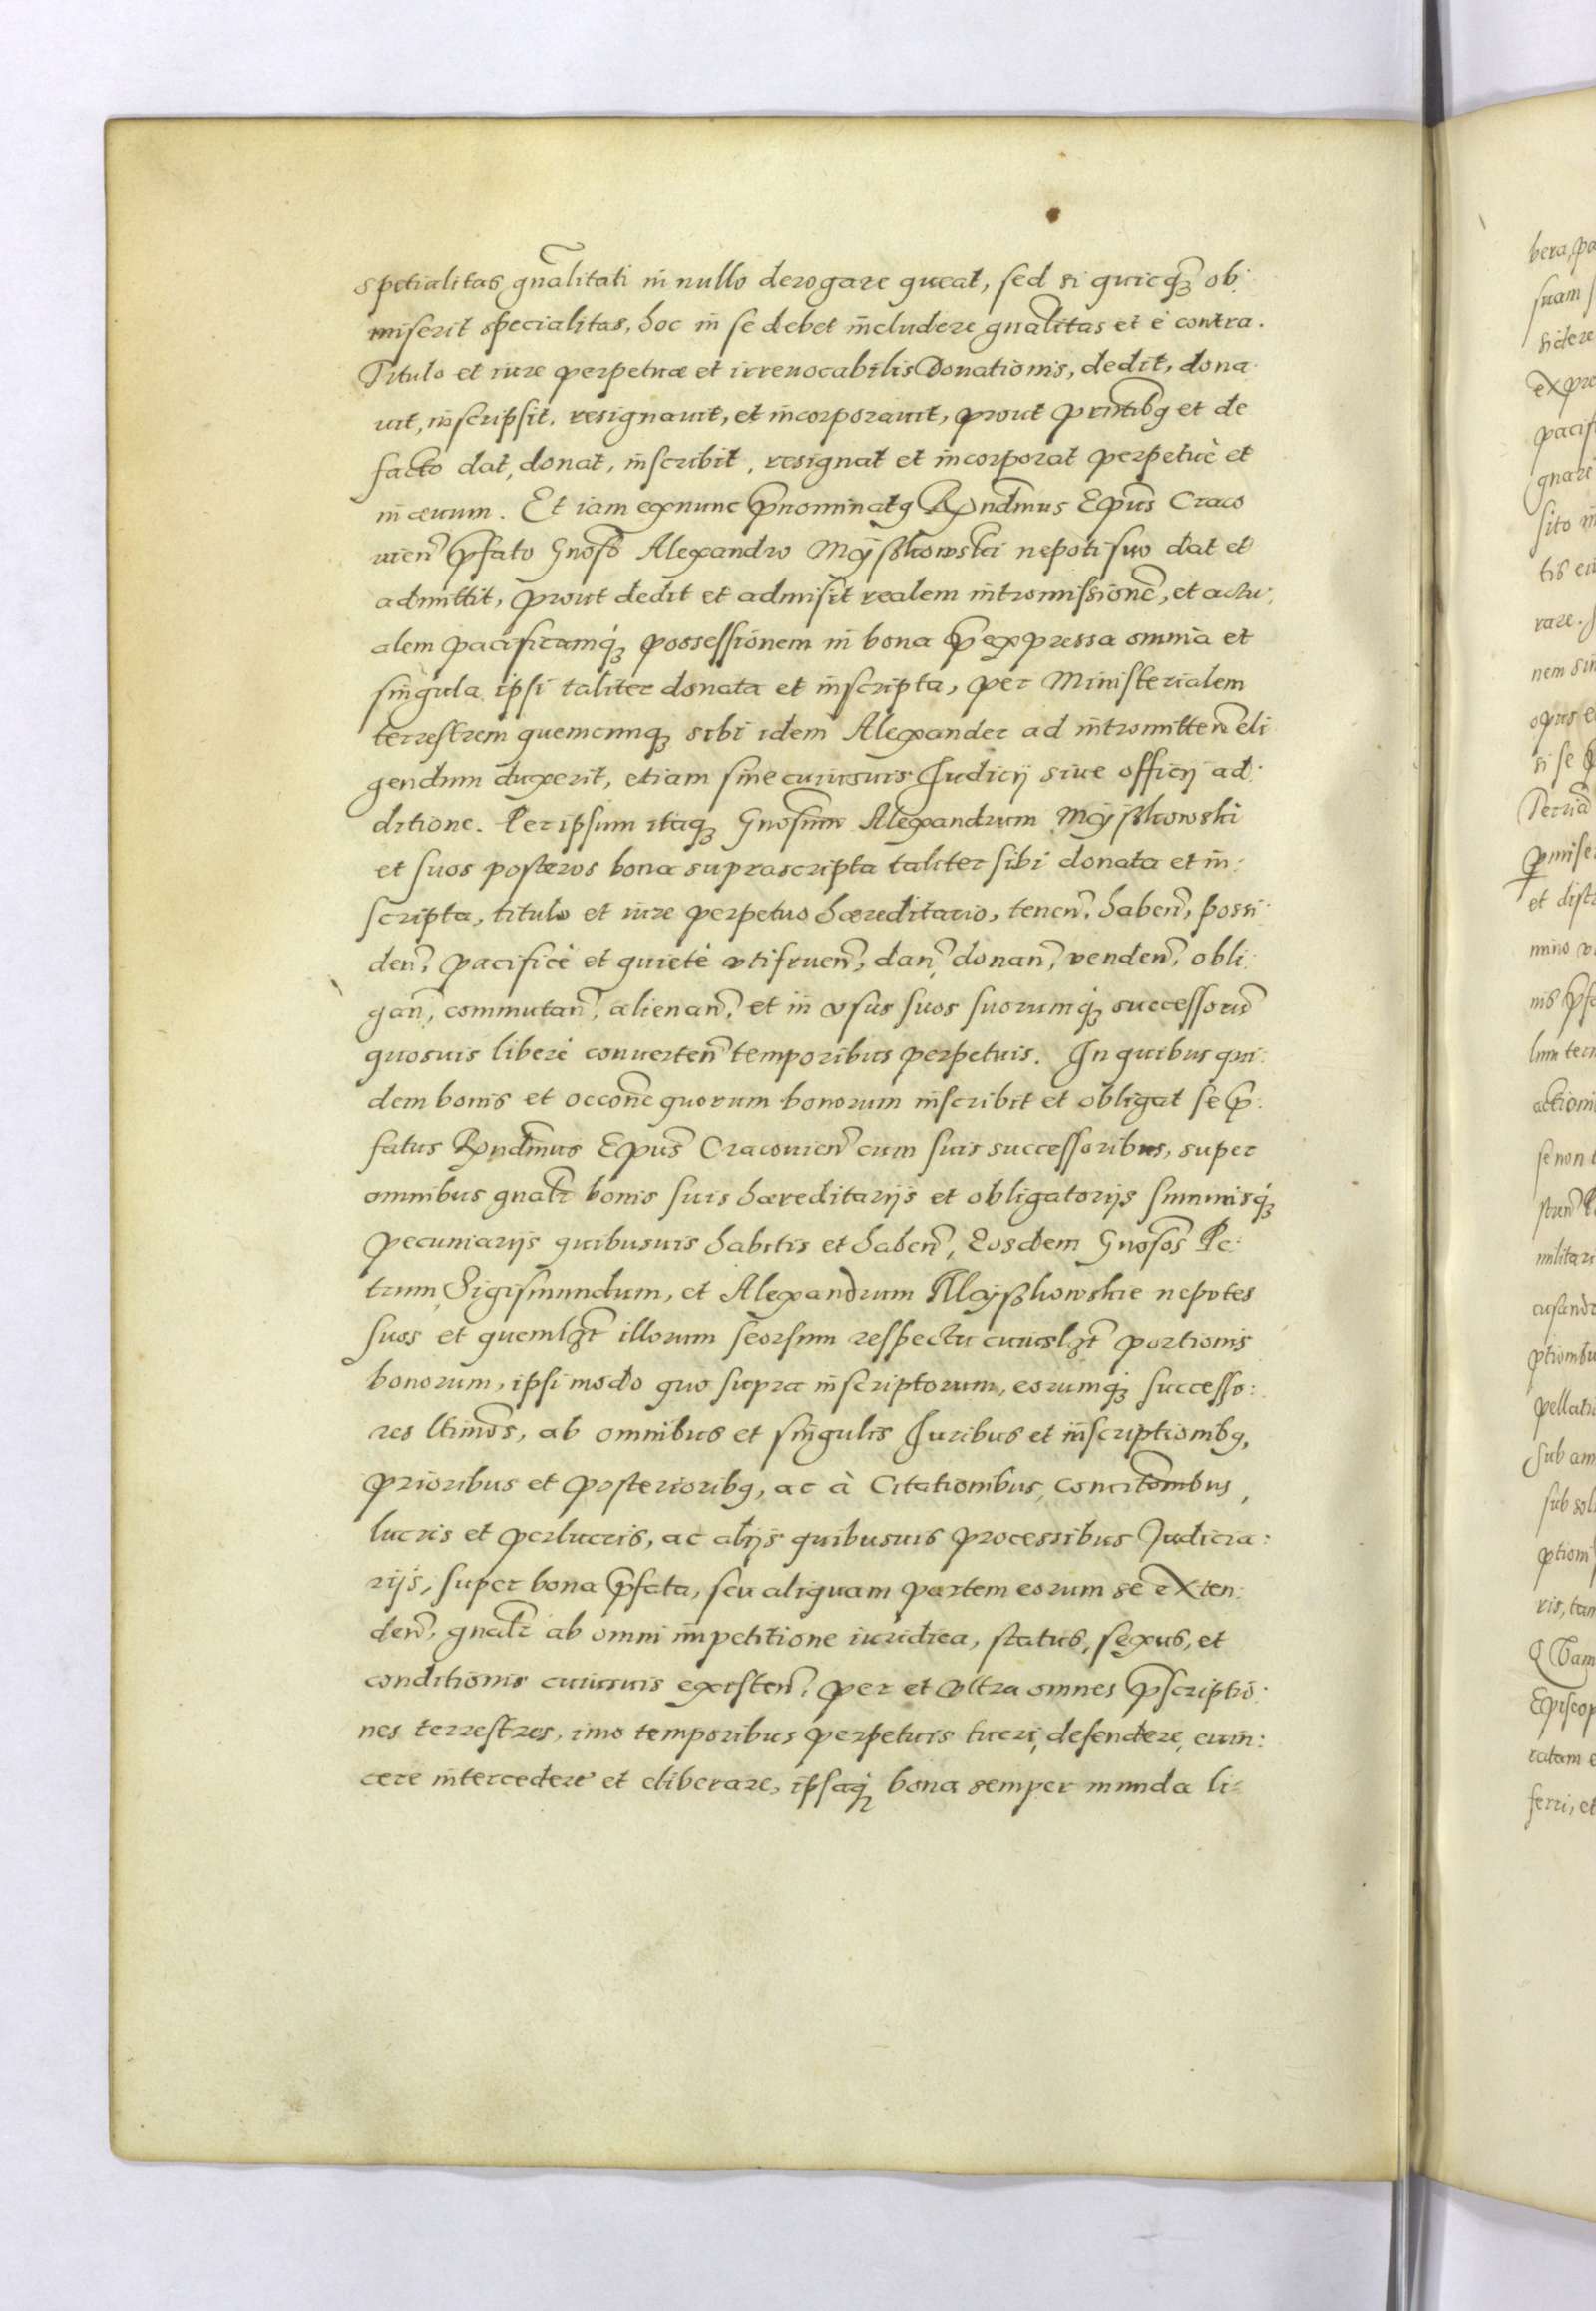 spetialitas gn̄alitati in nullo derogare queat, sed si quicq̄ꝫ ob:
miserit specialitas, hoc in se debet includere gn̄alitas et è contra.
Titulo et iure perpetuæ et irreuocabilis Donationis, dedit, dona:
uit, inscripsit, resignauit, et incorporauit, prout pn̄tibꝯ et de
facto dat, donat, inscribit, resignat et incorporat perpetuè et
in æuum. Et iam exnunc p̄nominatꝯ Rn̄dmus Ep̄us Craco
uien̄ p̄fato Gn̄oso Alexandro Mÿszkowski nepoti suo dat et
admittit, prout dedit et admisit realem intromissionē, et actu:
alem pacificamq́ꝫ possessionem in bona p̄expressa omnia et
singula ipsi taliter donata et inscripta, per Ministerialem
terrestrem quemcunqꝫ sibi idem Alexander ad intromitten̄ eli
gendum duxerit, etiam sine cuiusuis Judicij siue officij ad:
ditione. Per ipsum itaqꝫ Gn̄osum Alexandrum Mÿszkowski
et suos posteros bona suprascripta taliter sibi donata et in:
scripta, titulo et iure perpetuo hæreditario, tenen̄, haben̄, possi:
den̄, pacificè et quietè vtifruen̄, dan̄, donan̄, venden̄, obli:
gan̄, commutan̄, alienan̄, et in vsus suos suorumq́ꝫ successorū
quosuis liberè conuerten̄ temporibus perpetuis. In quibus qui:
dem bonis et occōne quorum bonorum inscribit et obligat se p̄:
fatus Rn̄dmus Ep̄us Cracouien̄ cum suis successoribus, super
omnibus gn̄alr̄ bonis suis hæreditarijs et obligatorijs summisq́ꝫ
pecuniarijs quibusuis habitis et haben̄, Eosdem Gn̄osos Pe:
trum, Sigismundum, et Alexandrum Mÿszkowskie nepotes
suos et quemlꝫt̄ illorum seorsum respectu cuiuslꝫt̄ portionis
bonorum, ipsi modo quo supra inscriptorum, eorumq́ꝫ successo:
res l̄timos, ab omnibus et singulis Juribus et inscriptionibꝯ,
prioribus et posterioribꝯ, ac à Citationibus, concitōnibus,
lucris et perlucris, ac alijs quibusuis processibus Judicia:
rijs, super bona p̄fata, seu aliquam partem eorum se exten:
den̄, gn̄alr̄ ab omni impetitione iuridica, status, sexus, et
conditionis cuiusuis existen̄, per et vltra omnes p̄scriptio:
nes terrestres, imo temporibus perpetuis tueri, defendere, euin:
cere intercedere et eliberare, ipsaq́ꝫ bona semper munda li=